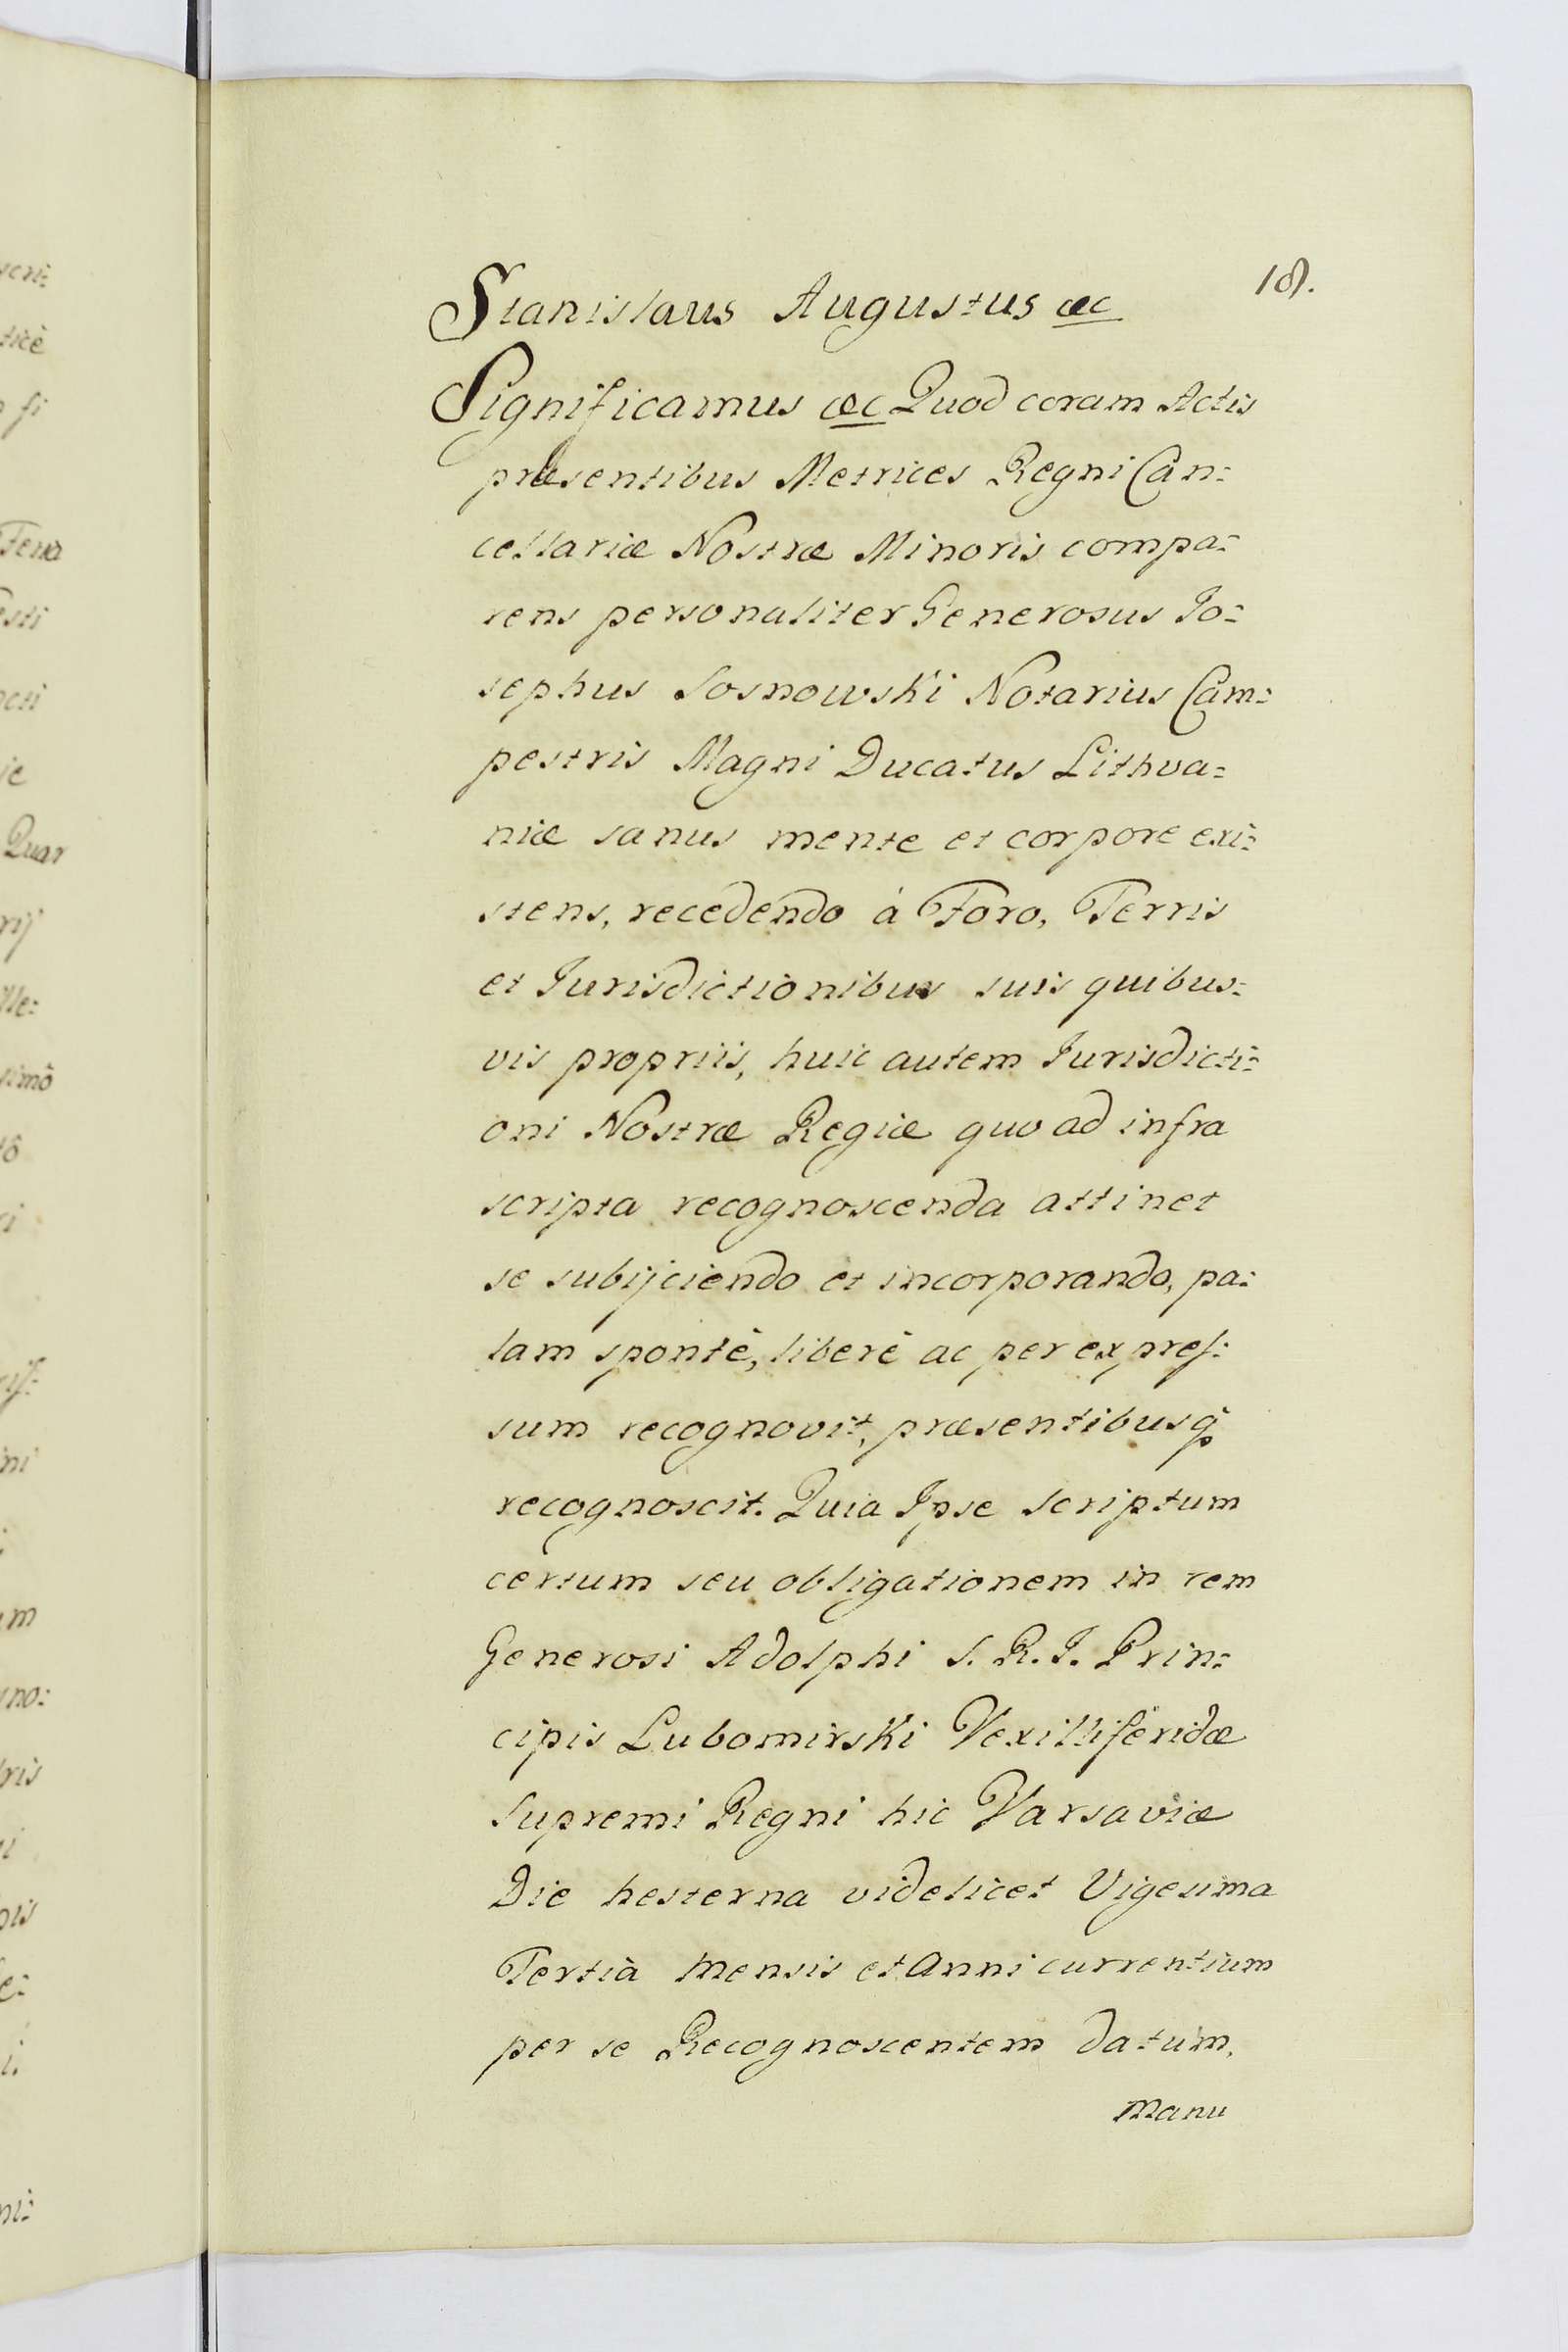 18.
Stanislaus Augustus &c
Significamus &c Quod coram Actis
præsentibus Metrices Regni Can=
cellariæ Nostræ Minoris compa=
rens personaliter Generosus Jo=
sephus Sosnowski Notarius Cam=
pestris Magni Ducatus Lithva=
niæ sanus mente et corpore exi=
stens, recedendo à Foro, Terris
et Jurisdictionibus suis quibus=
vis propriis, huic autem Jurisdicti=
oni Nostræ Regiæ quo ad infra
scripta recognoscenda attinet
se subijciendo et incorporando, pa=
lam spontè, liberè ac per expres=
sum recognovit, præsentibusq
recognoscit. Quia Ipse scriptum
certum seu obligationem in rem
Generosi Adolphi S. R. I. Prin=
cipis Lubomirski Vexilliferidæ
Supremi Regni hic Varsaviæ
Die hesterna videlicet Vigesima
Tertià Mensis et Anni currentium
per se Recognoscentem datum,
Manu